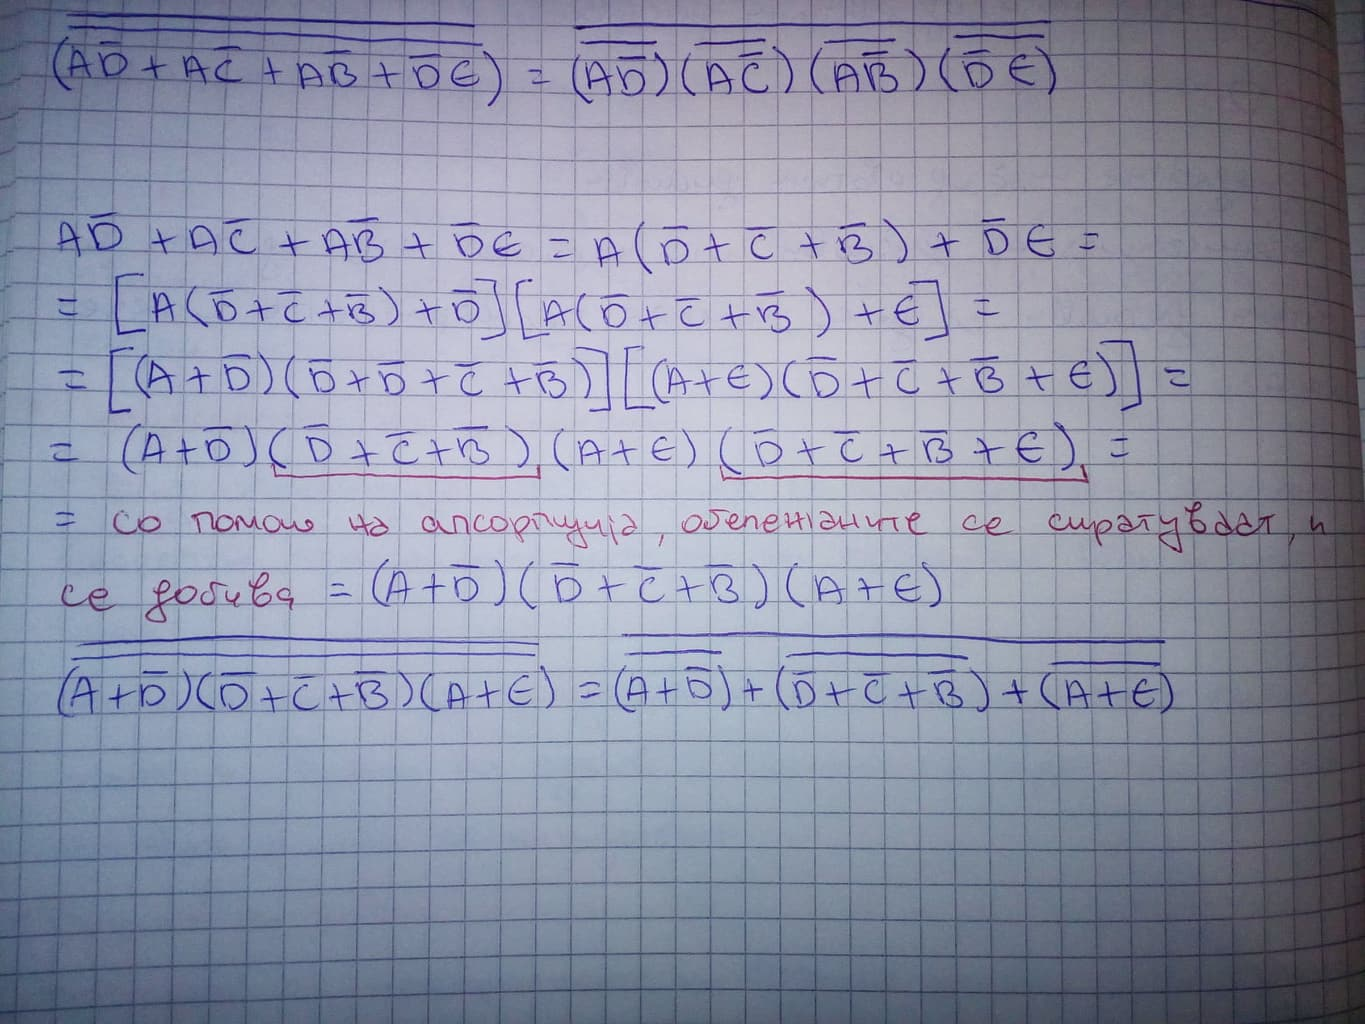 (AD̅ + AC̅ + AB̅ + D̅E) = (AD̅)(AC̅)(AB̅)(D̅E)
AD̅ + AC̅ + AB̅ + D̅E = A(D̅ + C̅ + B̅) + D̅E =
= [A(D̅ + C̅ + B̅) + D̅][A(D̅ + C̅ + B̅) + E] =
= [(A + D̅)(D̅ + D̅ + C̅ + B̅)][(A + E)(D̅ + C̅ + B̅ + E)] =
= (A + D̅)(D̅ + C̅ + B̅)(A + E)(D̅ + C̅ + B̅ + E) =
= со помош на апсорпција, обележаните се скратуваат, и
се добива = (A + D̅)(D̅ + C̅ + B̅)(A + E)
(A + D̅)(D̅ + C̅ + B̅)(A + E) = (A + D̅) + (D̅ + C̅ + B̅) + (A + E)